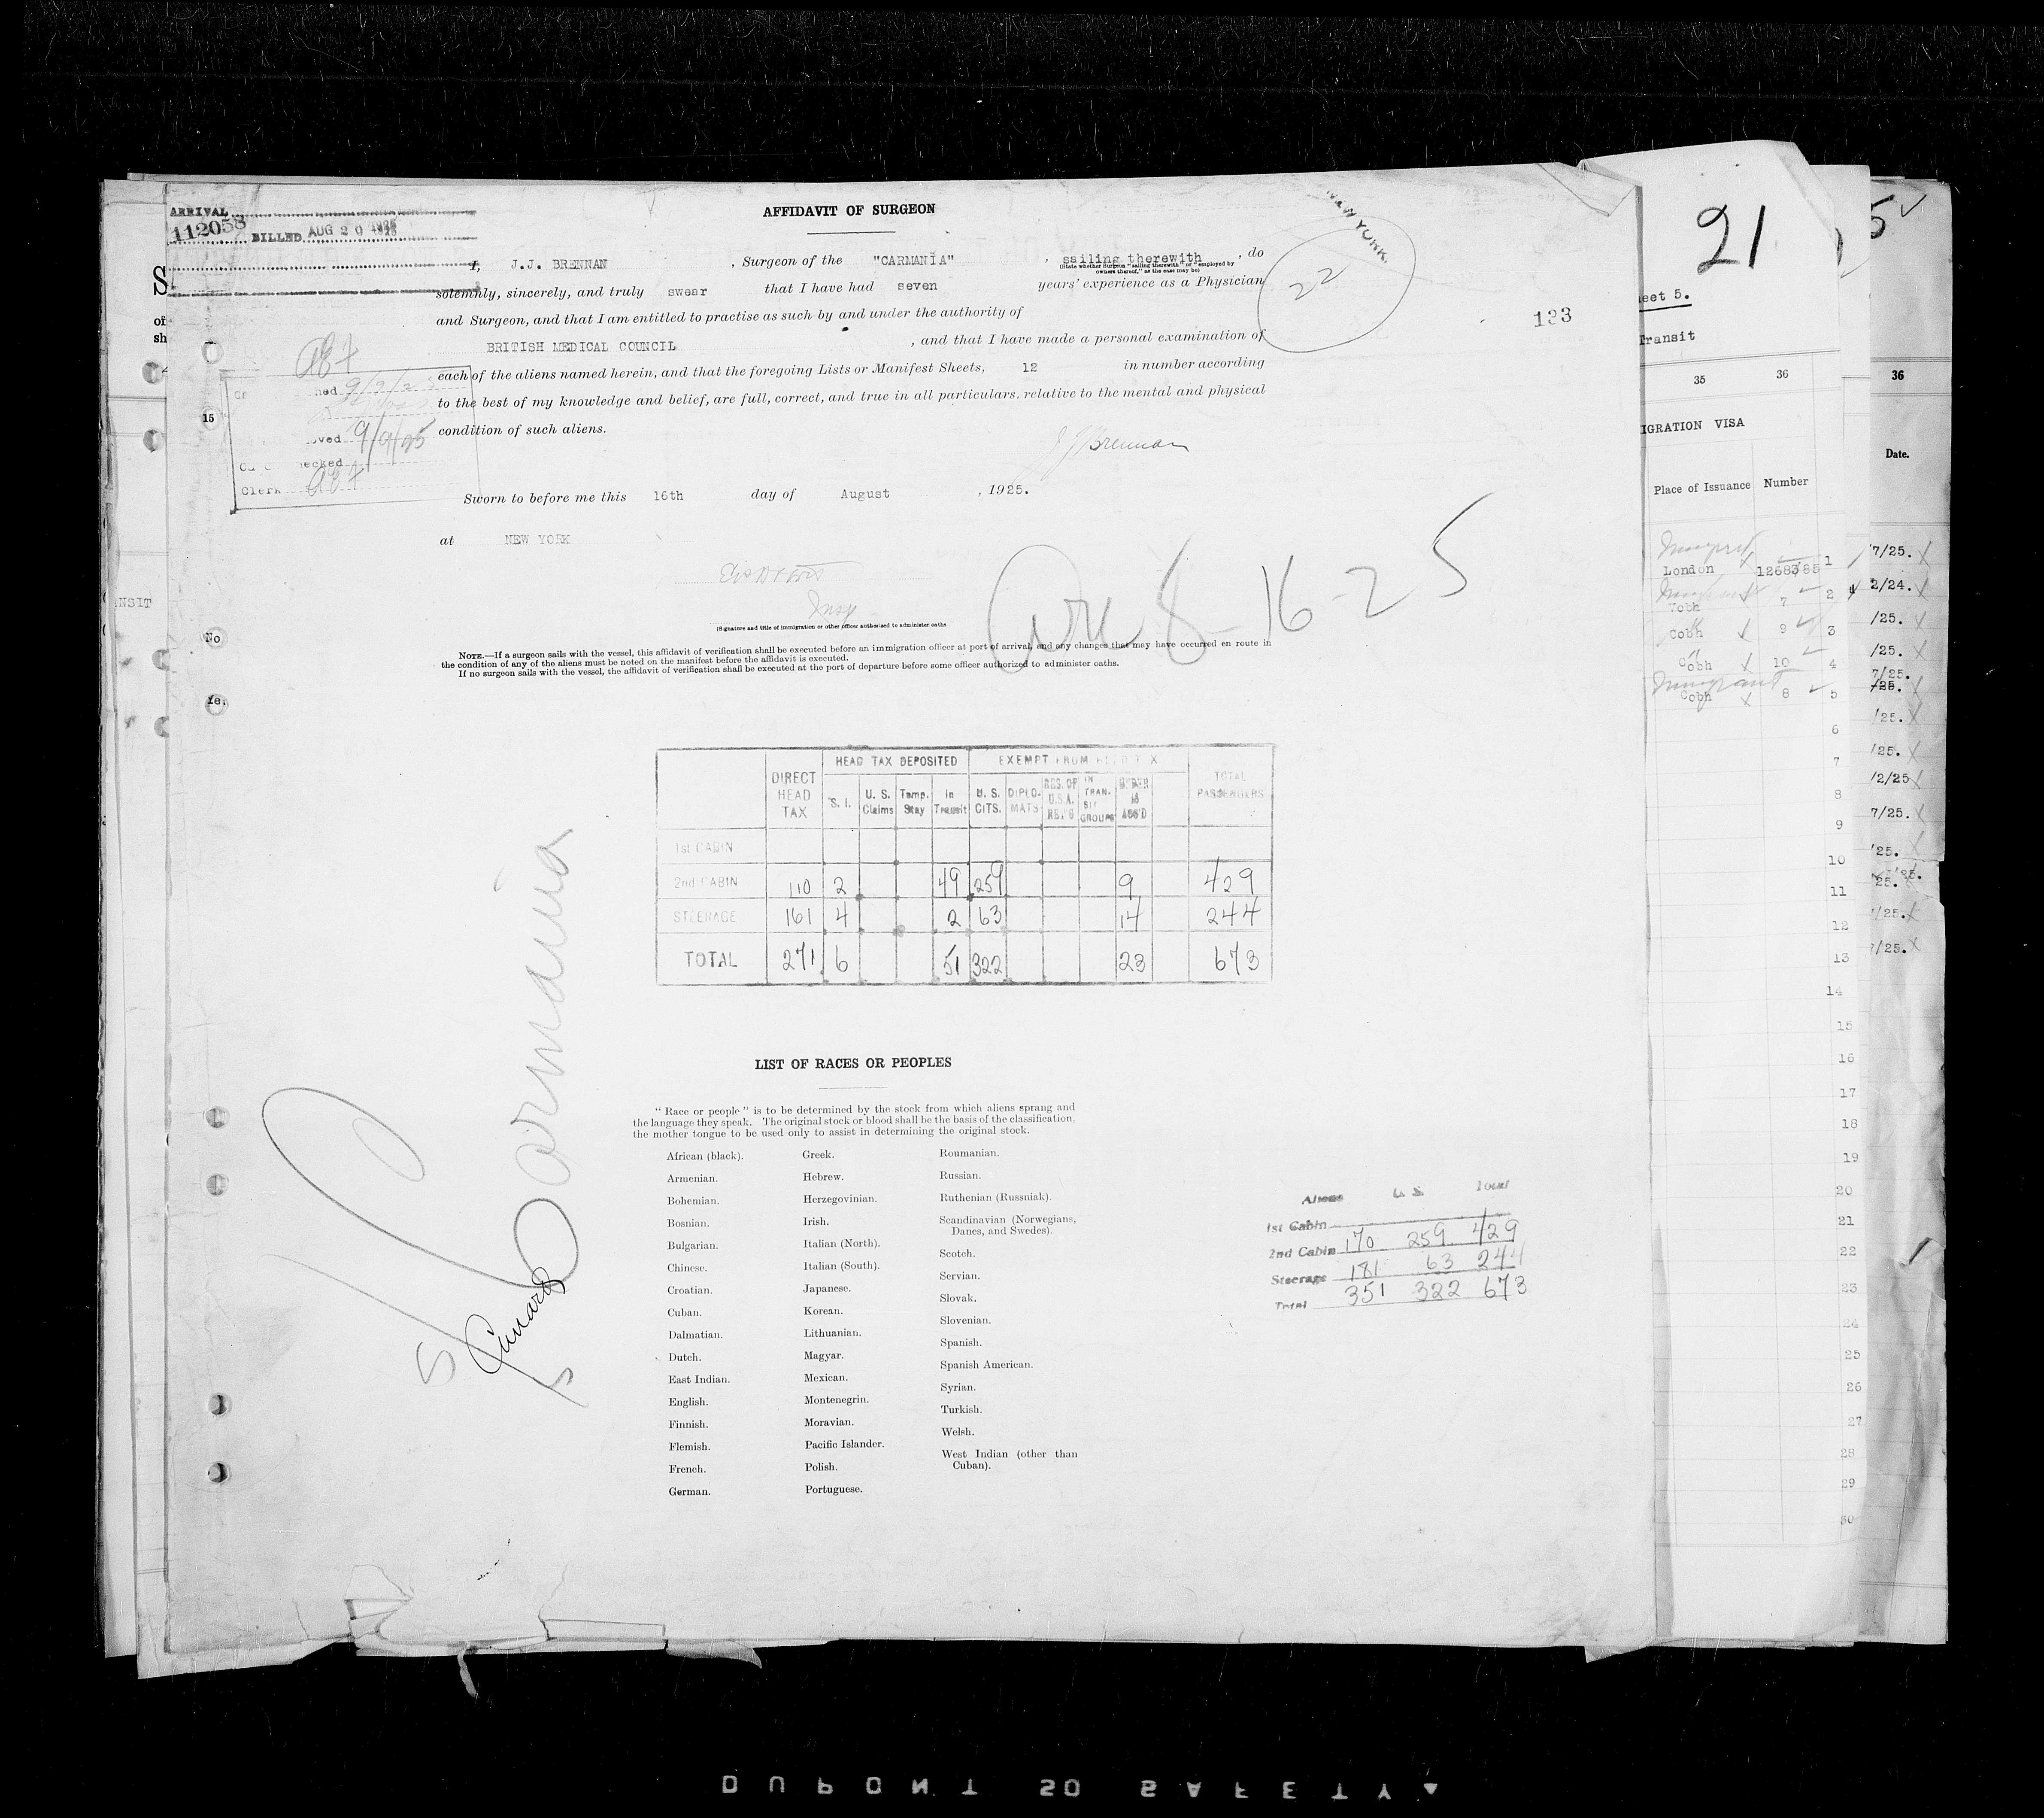 ARRIVAL
112058 BILLED AUG 20 1925
AFFIDAVIT OF SURGEON
NEW YORK.
22
133
I, J.J. BRENNAN, Surgeon of the "CARMANIA", sailing therewith, do
(State whether Surgeon "sailing therewith" or "employed by
owners thereof," as the case may be)
solemnly, sincerely, and truly swear that I have had seven years' experience as a Physician
and Surgeon, and that I am entitled to practise as such by and under the authority of
BRITISH MEDICAL COUNCIL, and that I have made a personal examination of
each of the aliens named herein, and that the foregoing Lists or Manifest Sheets, 12 in number according
to the best of my knowledge and belief, are full, correct, and true in all particulars, relative to the mental and physical
condition of such aliens.
J J Brennan
Sworn to before me this 16th day of August, 1925.
at NEW YORK
Insp
(Signature and title of immigration or other officer authorized to administer oaths
8-16-25
NOTE.—If a surgeon sails with the vessel, this affidavit of verification shall be executed before an immigration officer at port of arrival, and any changes that may have occurred en route in
the condition of any of the aliens must be noted on the manifest before the affidavit is executed.
If no surgeon sails with the vessel, the affidavit of verification shall be executed at the port of departure before some officer authorized to administer oaths.
9/9/25
Clerk
15
No
NSIT
DIRECT HEAD TAX HEAD TAX DEPOSITED EXEMPT FROM HEAD TAX TOTAL PASSENGERS
S. I. U. S. Claims Temp. Stay In Transit U. S. CITS. DIPLO-MATS RES. OF U.S.A. RE'T'G IN TRAN-SIT GROUPS UNDER 16 ACC'D
1st CABIN
2nd CABIN 110 2 49 259 9 429
STEERAGE 161 4 2 63 14 244
TOTAL 271 6 51 322 23 673
Carmania
Cunard
SS
LIST OF RACES OR PEOPLES
"Race or people" is to be determined by the stock from which aliens sprang and
the language they speak. The original stock or blood shall be the basis of the classification,
the mother tongue to be used only to assist in determining the original stock.
African (black).
Armenian.
Bohemian.
Bosnian.
Bulgarian.
Chinese.
Croatian.
Cuban.
Dalmatian.
Dutch.
East Indian.
English.
Finnish.
Flemish.
French.
German.
Greek.
Hebrew.
Herzegovinian.
Irish.
Italian (North).
Italian (South).
Japanese.
Korean.
Lithuanian.
Magyar.
Mexican.
Montenegrin.
Moravian.
Pacific Islander.
Polish.
Portuguese.
Roumanian.
Russian.
Ruthenian (Russniak).
Scandinavian (Norwegians,
Danes, and Swedes).
Scotch.
Servian.
Slovak.
Slovenian.
Spanish.
Spanish American.
Syrian.
Turkish.
Welsh.
West Indian (other than
Cuban).
Aliens U. S. Total
1st Cabin
2nd Cabin 170 259 429
Steerage 181 63 244
Total 351 322 673
21
eet 5.
Transit
35 36
IGRATION VISA
Place of Issuance Number
London 1
Cobh 7 2
Cobh 9 3
Cobh 10 4
Immigrant
Cobh 8 5
6
7
8
9
10
11
12
13
14
15
16
17
18
19
20
21
22
23
24
25
26
27
28
29
30
5
36
Date.
7/25.
2/24.
/25.
/25.
7/25.
/25.
/25.
/25.
/2/25
7/25.
/25.
/25.
/25.
7/25.
DUPONT SO SAFETY